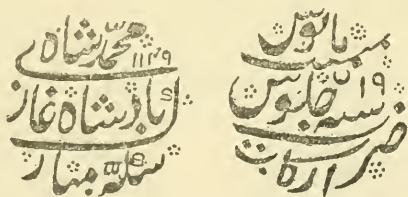 محمد شاه
۱۱۴۹
باد شاه غاز
سكه مبار
مانوس
ميمنت
سنه ۱۹ جلوس
ضرب
اركات